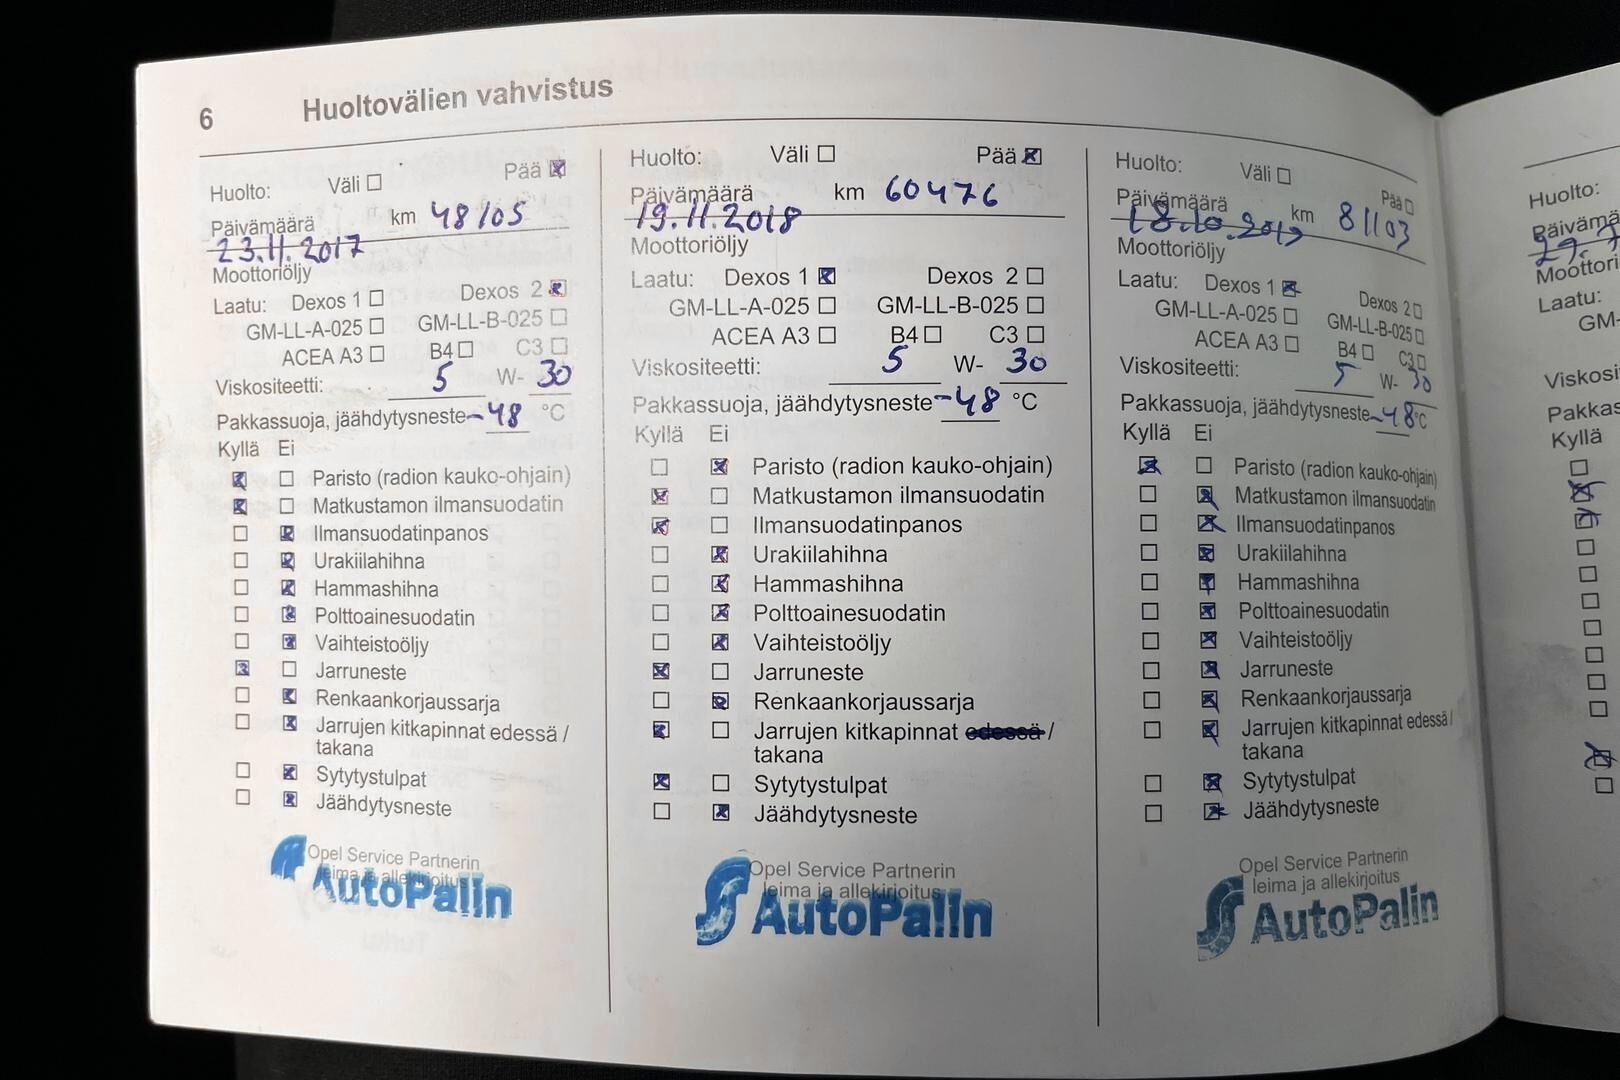 6 Huoltovälien vahvistus
Huolto: Väli ☐ Pää ☒
Päivämäärä km 48105
23.11.2017
Moottoriöljy
Laatu: Dexos 1 ☐ Dexos 2 ☒
GM-LL-A-025 ☐ GM-LL-B-025 ☐
ACEA A3 ☐ B4 ☐ C3 ☐
Viskositeetti: 5 W- 30
Pakkassuoja, jäähdytysneste -48 °C
Kyllä Ei
☒ ☐ Paristo (radion kauko-ohjain)
☒ ☐ Matkustamon ilmansuodatin
☐ ☒ Ilmansuodatinpanos
☐ ☒ Urakiilahihna
☐ ☒ Hammashihna
☐ ☒ Polttoainesuodatin
☐ ☒ Vaihteistoöljy
☒ ☐ Jarruneste
☐ ☒ Renkaankorjaussarja
☐ ☒ Jarrujen kitkapinnat edessä /
takana
☐ ☒ Sytytystulpat
☐ ☒ Jäähdytysneste
Opel Service Partnerin
leima ja allekirjoitus
AutoPalin
Huolto: Väli ☐ Pää ☒
Päivämäärä km 60476
19.11.2018
Moottoriöljy
Laatu: Dexos 1 ☒ Dexos 2 ☐
GM-LL-A-025 ☐ GM-LL-B-025 ☐
ACEA A3 ☐ B4 ☐ C3 ☐
Viskositeetti: 5 W- 30
Pakkassuoja, jäähdytysneste -48 °C
Kyllä Ei
☐ ☒ Paristo (radion kauko-ohjain)
☒ ☐ Matkustamon ilmansuodatin
☒ ☐ Ilmansuodatinpanos
☐ ☒ Urakiilahihna
☐ ☒ Hammashihna
☐ ☒ Polttoainesuodatin
☐ ☒ Vaihteistoöljy
☒ ☐ Jarruneste
☐ ☒ Renkaankorjaussarja
☒ ☐ Jarrujen kitkapinnat edessä /
takana
☒ ☐ Sytytystulpat
☐ ☒ Jäähdytysneste
Opel Service Partnerin
leima ja allekirjoitus
AutoPalin
Huolto: Väli ☐ Pää ☐
Päivämäärä km 81103
18.10.2019
Moottoriöljy
Laatu: Dexos 1 ☒ Dexos 2 ☐
GM-LL-A-025 ☐ GM-LL-B-025 ☐
ACEA A3 ☐ B4 ☐ C3 ☐
Viskositeetti: 5 W- 30
Pakkassuoja, jäähdytysneste -48 °C
Kyllä Ei
☒ ☐ Paristo (radion kauko-ohjain)
☐ ☒ Matkustamon ilmansuodatin
☐ ☒ Ilmansuodatinpanos
☐ ☒ Urakiilahihna
☐ ☒ Hammashihna
☐ ☒ Polttoainesuodatin
☐ ☒ Vaihteistoöljy
☐ ☒ Jarruneste
☐ ☒ Renkaankorjaussarja
☐ ☒ Jarrujen kitkapinnat edessä /
takana
☐ ☒ Sytytystulpat
☐ ☒ Jäähdytysneste
Opel Service Partnerin
leima ja allekirjoitus
AutoPalin
Huolto:
Päivämä
Moottori
Laatu:
GM-
Viskosi
Pakkas
Kyllä